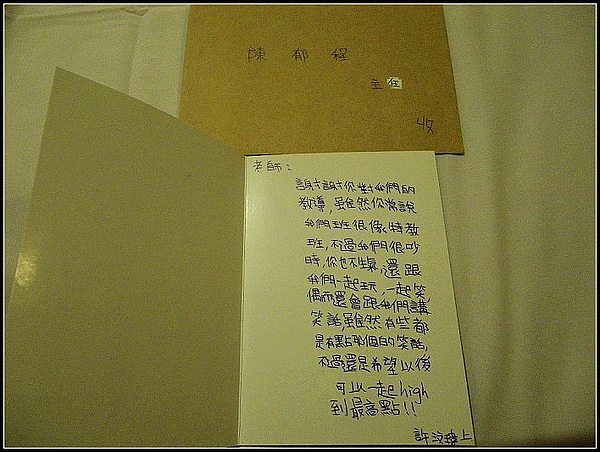 陳郁程
主任
收
老師:
謝謝你對我們的
教導,雖然你常說
我們班很像特教
班,不過我們很吵
時,你也不生氣,還跟
我們一起玩,一起笑,
偶而還會跟我們講
笑話,雖然有些都
是有點那個的笑話,
不過還是希望以後
可以一起high
到最高點!!
許汶 上